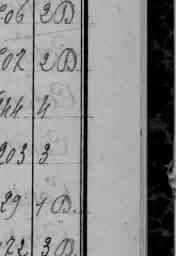 06 2D
02 2D
44 4
203 3
29 4D.
172 3D.